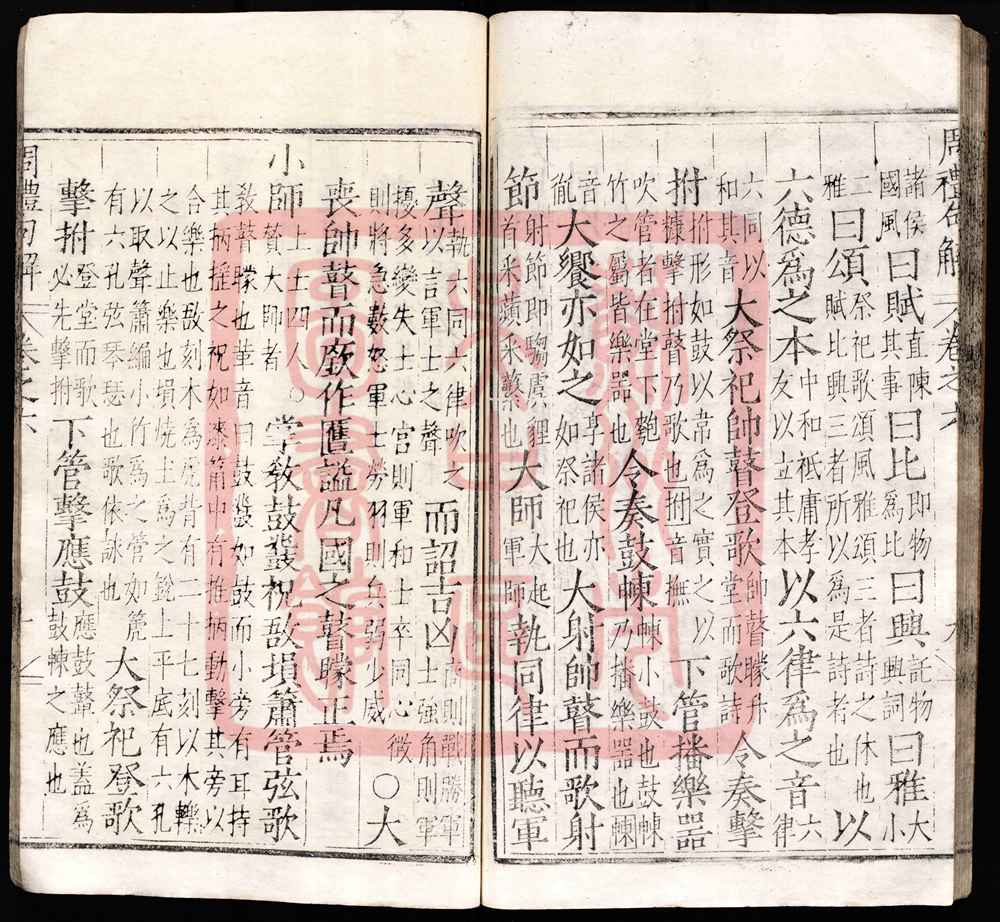 周禮句解 卷之六
諸侯國風曰賦直陳其事曰比即物為比曰興託物興詞曰雅大小
二雅曰頌祭祀歌頌風雅頌三者詩之休也賦比興三者所以為是詩者也以
六德爲之本中和祗庸孝友以立其本以六律爲之音六律
六同以和其音大祭祀帥瞽登歌帥瞽矇升堂而歌詩令奏擊
拊拊形如鼓以韋為之實之以糠擊拊瞽乃歌也拊音撫下管播樂器
吹管者在堂下匏竹之屬皆樂器也令奏鼓朄朄小鼓也鼓朄乃播樂器也朄
音胤大饗亦如之享諸侯亦如祭祀也大射帥瞽而歌射
節射節即騶虞貍首釆蘋釆蘩也大師大起軍師執同律以聽軍
聲執六同六律吹之以言軍士之聲而詔吉凶商則戰勝軍士強角則軍
擾多變失士心宮則軍和士卒同心徵則將急數怒軍士勞羽則兵弱少威〇大
喪帥瞽而廞作匶謚凡國之瞽矇正焉
小師上士四人〇贊大師者掌敎鼓鼗柷敔塤簫管弦歌
敎瞽矇也革音曰鼓鼗如鼓而小旁有耳持其柄揺之柷如漆筩中有推柄動擊其旁以
合樂也敔刻木為虎背有二十七刻以木轢之以止樂也塤燒土為之銳上平底有六孔
以取聲簫編小竹為之管如篪有六孔弦琴瑟也歌依詠也大祭祀登歌
擊拊登堂而歌必先擊拊下管擊應鼓應鼓鼙也盖為鼓朄之應也
周禮句解 卷之六